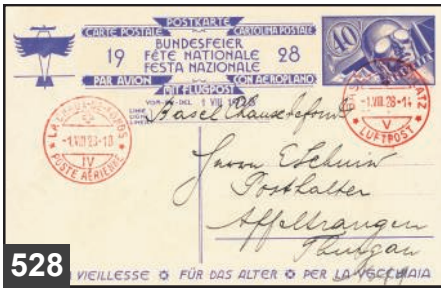 POSTKARTE
CARTE POSTALE CARTOLINA POSTALE
BUNDESFEIER
19 FÊTE NATIONALE 28
FESTA NAZIONALE
PAR AVION CON AEROPLANO
MIT FLUGPOST
VOM-DU-DEL 1 VIII 1928
40
LUFTPOST
V
-1.VIII.28-14
LA CHAUX-DE-FONDS
-1.VIII 28-18
IV
POSTE AÉRIENNE
Basel Chauxdefonds
Herrn E Schuir
Posthalter
Affeltrangen
Thurgau
528
VIEILLESSE FÜR DAS ALTER PER LA VECCHIAIA